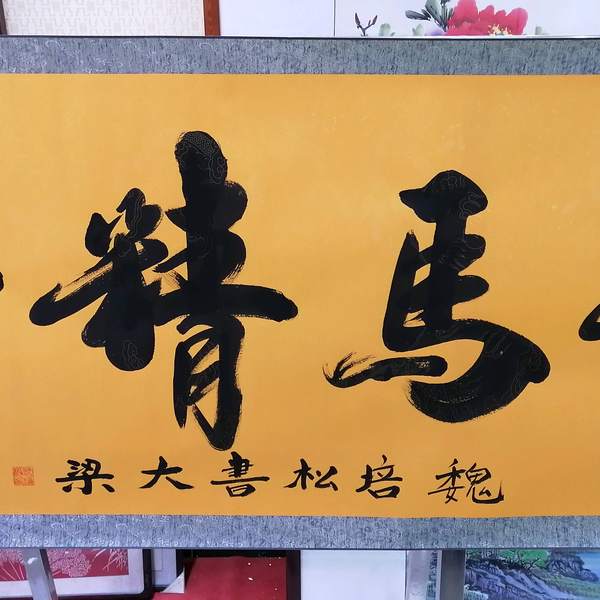 馬精
魏培松書大梁